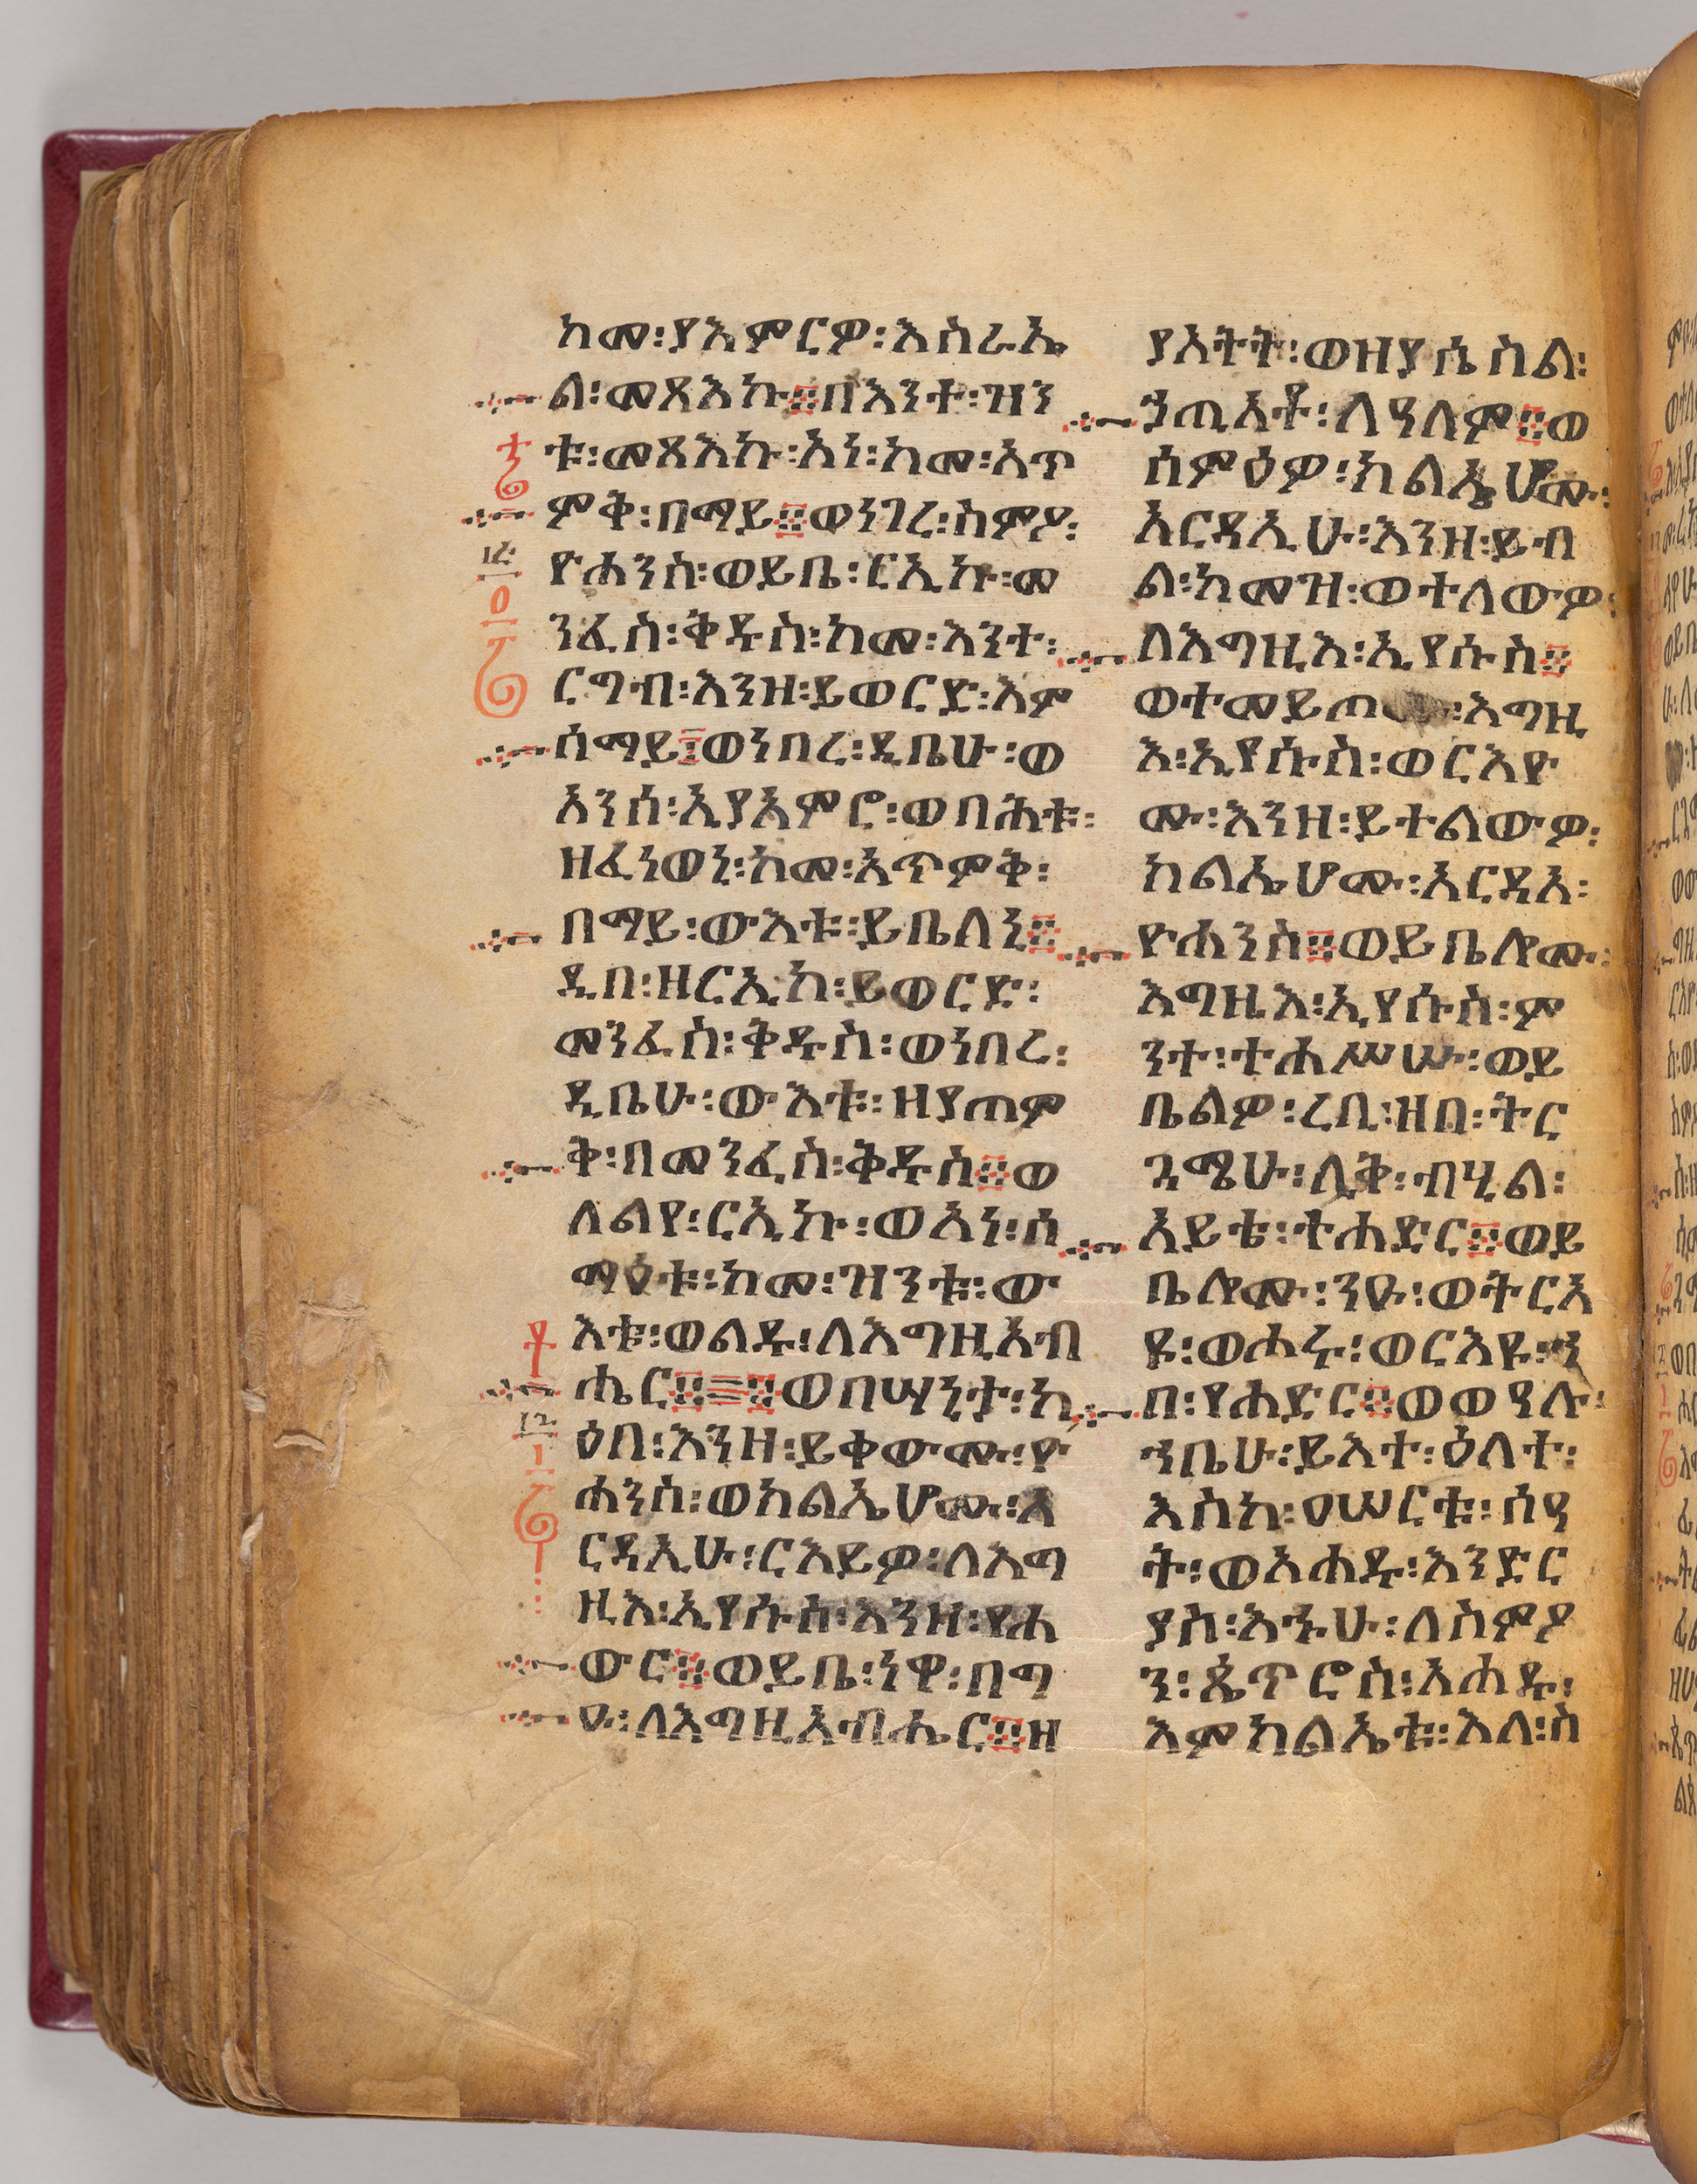 ከመ፡ያእምርዎ፡እስራኤ
ል፡መጻእኩ፨በእንተ፡ዝን
ቱ፡መጻእኩ፡አነ፡ከመ፡አጥ
ምቅ፡በማይ፨ወነገረ፡ስምዖ፡
ዮሐንስ፡ወይቤ፡ርኢኩ፡መ
ንፈስ፡ቅዱስ፡ከመ፡እንተ፡
ርግብ፡እንዘ፡ይወርድ፡እም
ሰማይ፨ወነበረ፡ዲቤሁ፡ወ
አንሰ፡ኢያአምሮ፡ወበሕቱ፡
ዘፈነወኒ፡ከመ፡አጥምቅ፡
በማይ፡ውእቱ፡ይቤለኒ፨
ዲበ፡ዘርኢከ፡ይወርድ፡
መንፈስ፡ቅዱስ፡ወነበረ፡
ዲቤሁ፡ውእቱ፡ዘያጠም
ቅ፡በመንፈስ፡ቅዱስ፨ወ
ለልየ፡ርኢኩ፡ወአነ፡ሰ
ማዕቱ፡ከመ፡ዝንቱ፡ው
እቱ፡ወልዱ፡ለእግዚአብ
ሔር፨፨ወበሣኒታ፡ካ
ዕበ፡እንዘ፡ይቀውሙ፡ዮ
ሐንስ፡ወክልኤሆሙ፡አ
ርዳኢሁ፡ርእይዎ፡ለእግ
ዚእ፡ኢየሱስ፡እንዘ፡የሐ
ውር፨ወይቤ፡ነዋ፡በግ
ዑ፡ለእግዚአብሔር፨ዘ
ያአትት፡ወዘያሴስል፡
ኃጢአቶ፡ለዓለም፨ወ
ሰምዕዎ፡ክልኤሆሙ፡
አርዳኢሁ፡እንዘ፡ይብ
ል፡ከመዝ፡ወተለውዎ፡
ለእግዚእ፡ኢየሱስ፨
ወተመይጠ፡እግዚ
እ፡ኢየሱስ፡ወርእዮ
ሙ፡እንዘ፡ይተልውዎ፡
ክልኤሆሙ፡አርዳእ፡
ዮሐንስ፨ወይቤሎሙ፡
እግዚእ፡ኢየሱስ፡ም
ንተ፡ተሐሥሡ፡ወይ
ቤልዎ፡ረቢ፡ዘበ፡ትር
ጓሜሁ፡ሊቅ፡ብሂል፡
አይቴ፡ተሐድር፨ወይ
ቤሎሙ፡ንዑ፡ወትርአ
ዩ፡ወሐሩ፡ወርእዩ፡ኀ
በ፡የሐድር፨ወወዓሉ፡
ኀቤሁ፡ይእተ፡ዕለተ፡
እስከ፡ዐሠርቱ፡ሰዓ
ት፡ወአሐዱ፡እንድር
ያስ፡እኁሁ፡ለስምዖ
ን፡ጴጥሮስ፡አሐዱ፡
እምክልኤቱ፡እለ፡ስ